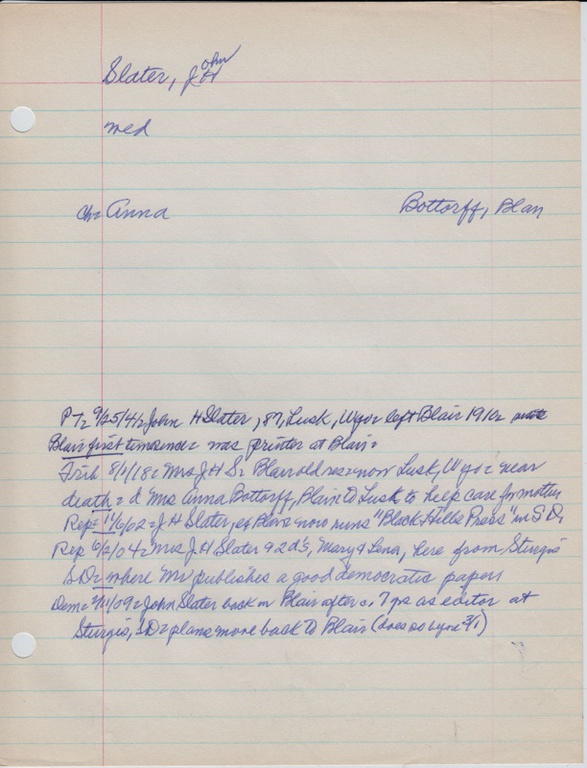 Slater, John H
med
ch= Anna Bottorff, Blair
PT= 9/25/41= John H Slater, 87, Lusk, Wyo= left Blair 1910=
Blair first time since= was printer at Blair=
Trib 8/1/18= Mrs J H S= Blair old res= now Lusk, Wyo= near
death= d Mrs Anna Bottorff, Blair to Lusk to help care for mother
Rep= 1/6/02= J H Slater, ex Blair= now runs "Black Hills Press" in S D=
Rep 6/2/04= Mrs J H Slater & 2 d's, Mary & Lena, here from Sturgis
S D= where Mr publishes a good democratic paper=
Dem= 2/11/09= John Slater back in Blair after c. 7 yrs as editor at
Sturgis, S D= plans move back to Blair (does so by 3/1)